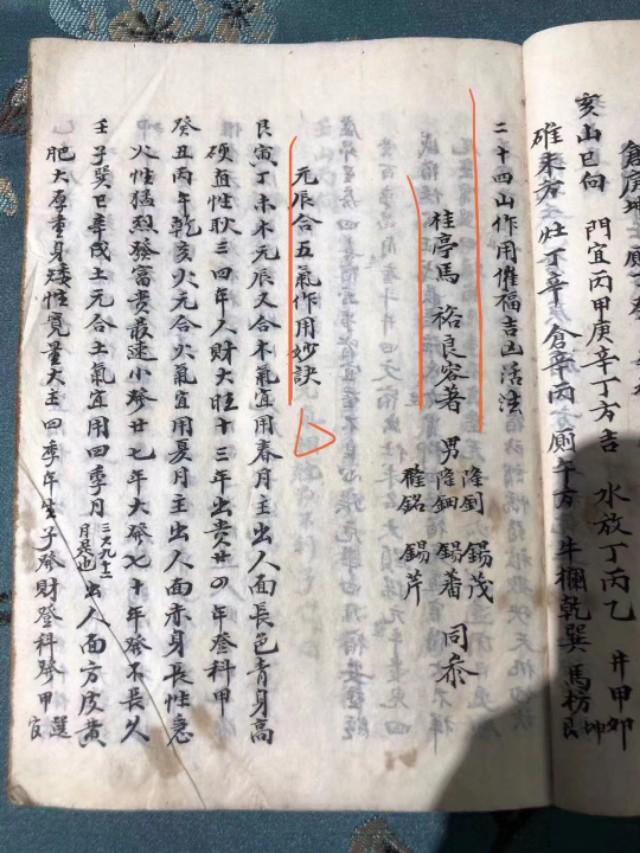 倉庫坤
亥山巳向 門宜丙甲庚辛丁方吉 水放丁丙乙 井甲卯坤
碓未方 灶丁辛 倉辛丙 廁午方 牛欄乾巽 馬枋艮
二十四山作用催福吉凶活法
桂亭馬 裕良容著 男 隆釗 隆鈿 隆銘 錫茂 錫蕃 錫芹 同參
元辰合五氣作用妙訣
艮寅丁未木元辰又合木氣宜用春月主出人面長色青身高
硬直性耿三四年人財大旺十三年出貴廿四年登科甲
癸丑丙午乾亥火元合火氣宜用夏月主出人面赤身長性急
火性猛烈發富貴最速小發廿七年大發七十年發不長久
壬子巽巳辛戌土元合土氣宜用四季月三六九十二月是也出人面方皮黃
肥大厚重身矮性寬量大主四季年生子發財登科發甲選官